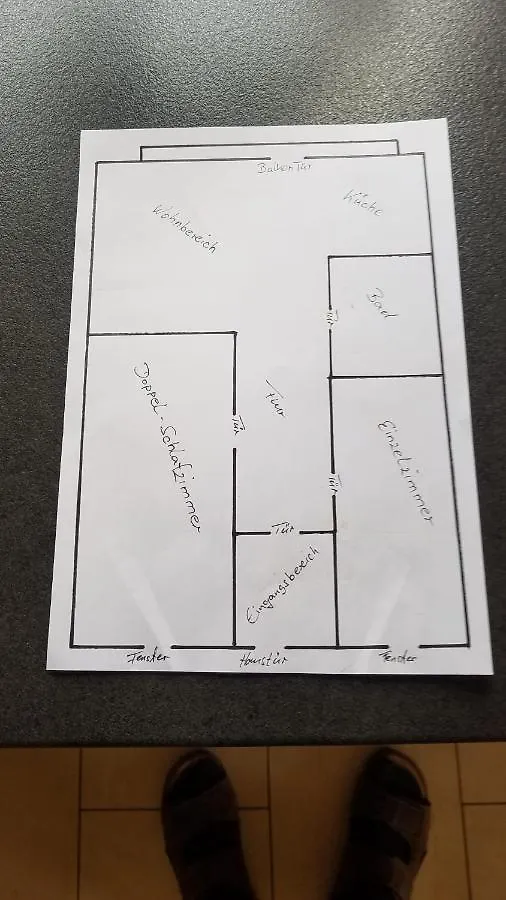 Balkon Tür
Küche
Wohnbereich
Bad
Tür
Doppel-Schlafzimmer
Flur
Tür
Einzelzimmer
Tür
Tür
Eingangsbereich
Fenster
Haustür
Fenster